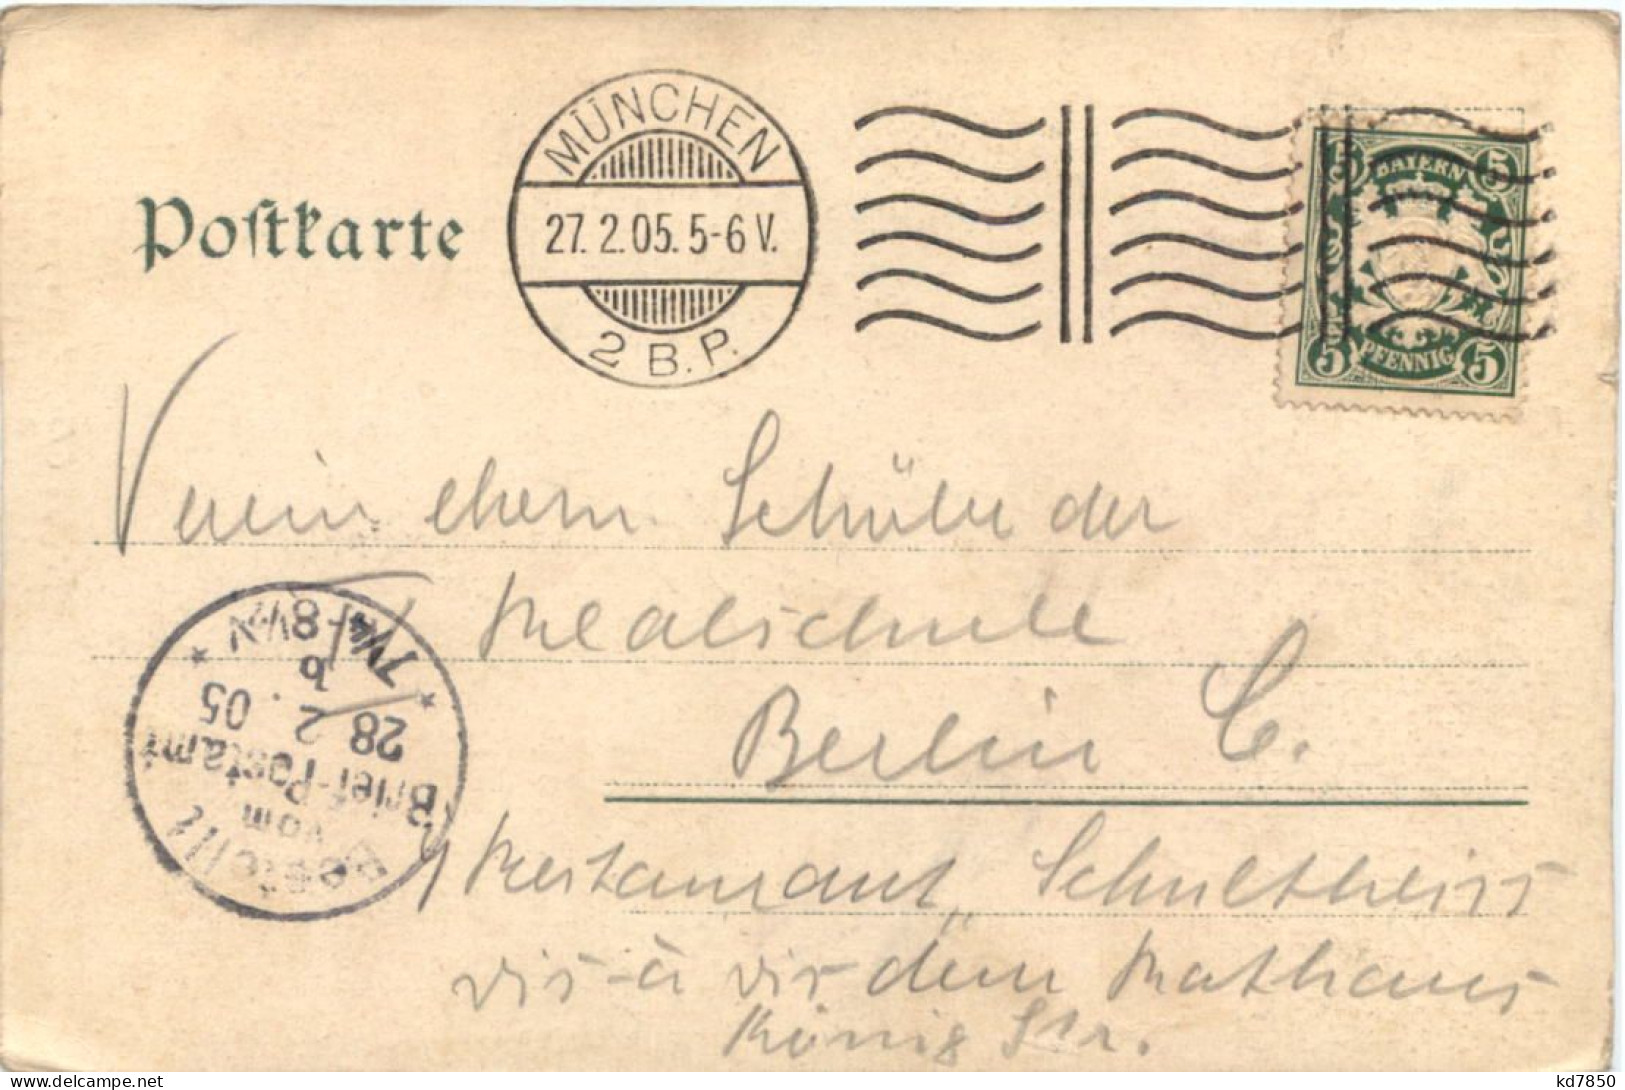 MÜNCHEN
27. 2. 05. 5-6 V.
2 B. P.
Poſtkarte
5 BAYERN 5
5 PFENNIG 5
Verein ehem. Schüler der
Realschule
Berlin C.
Restaurant Schultheiss
vis-à vis dem Rathaus
König Str.
Bestellt
vom
Brief-Postamt
28 2. 05
7¼-8½N
kd7850